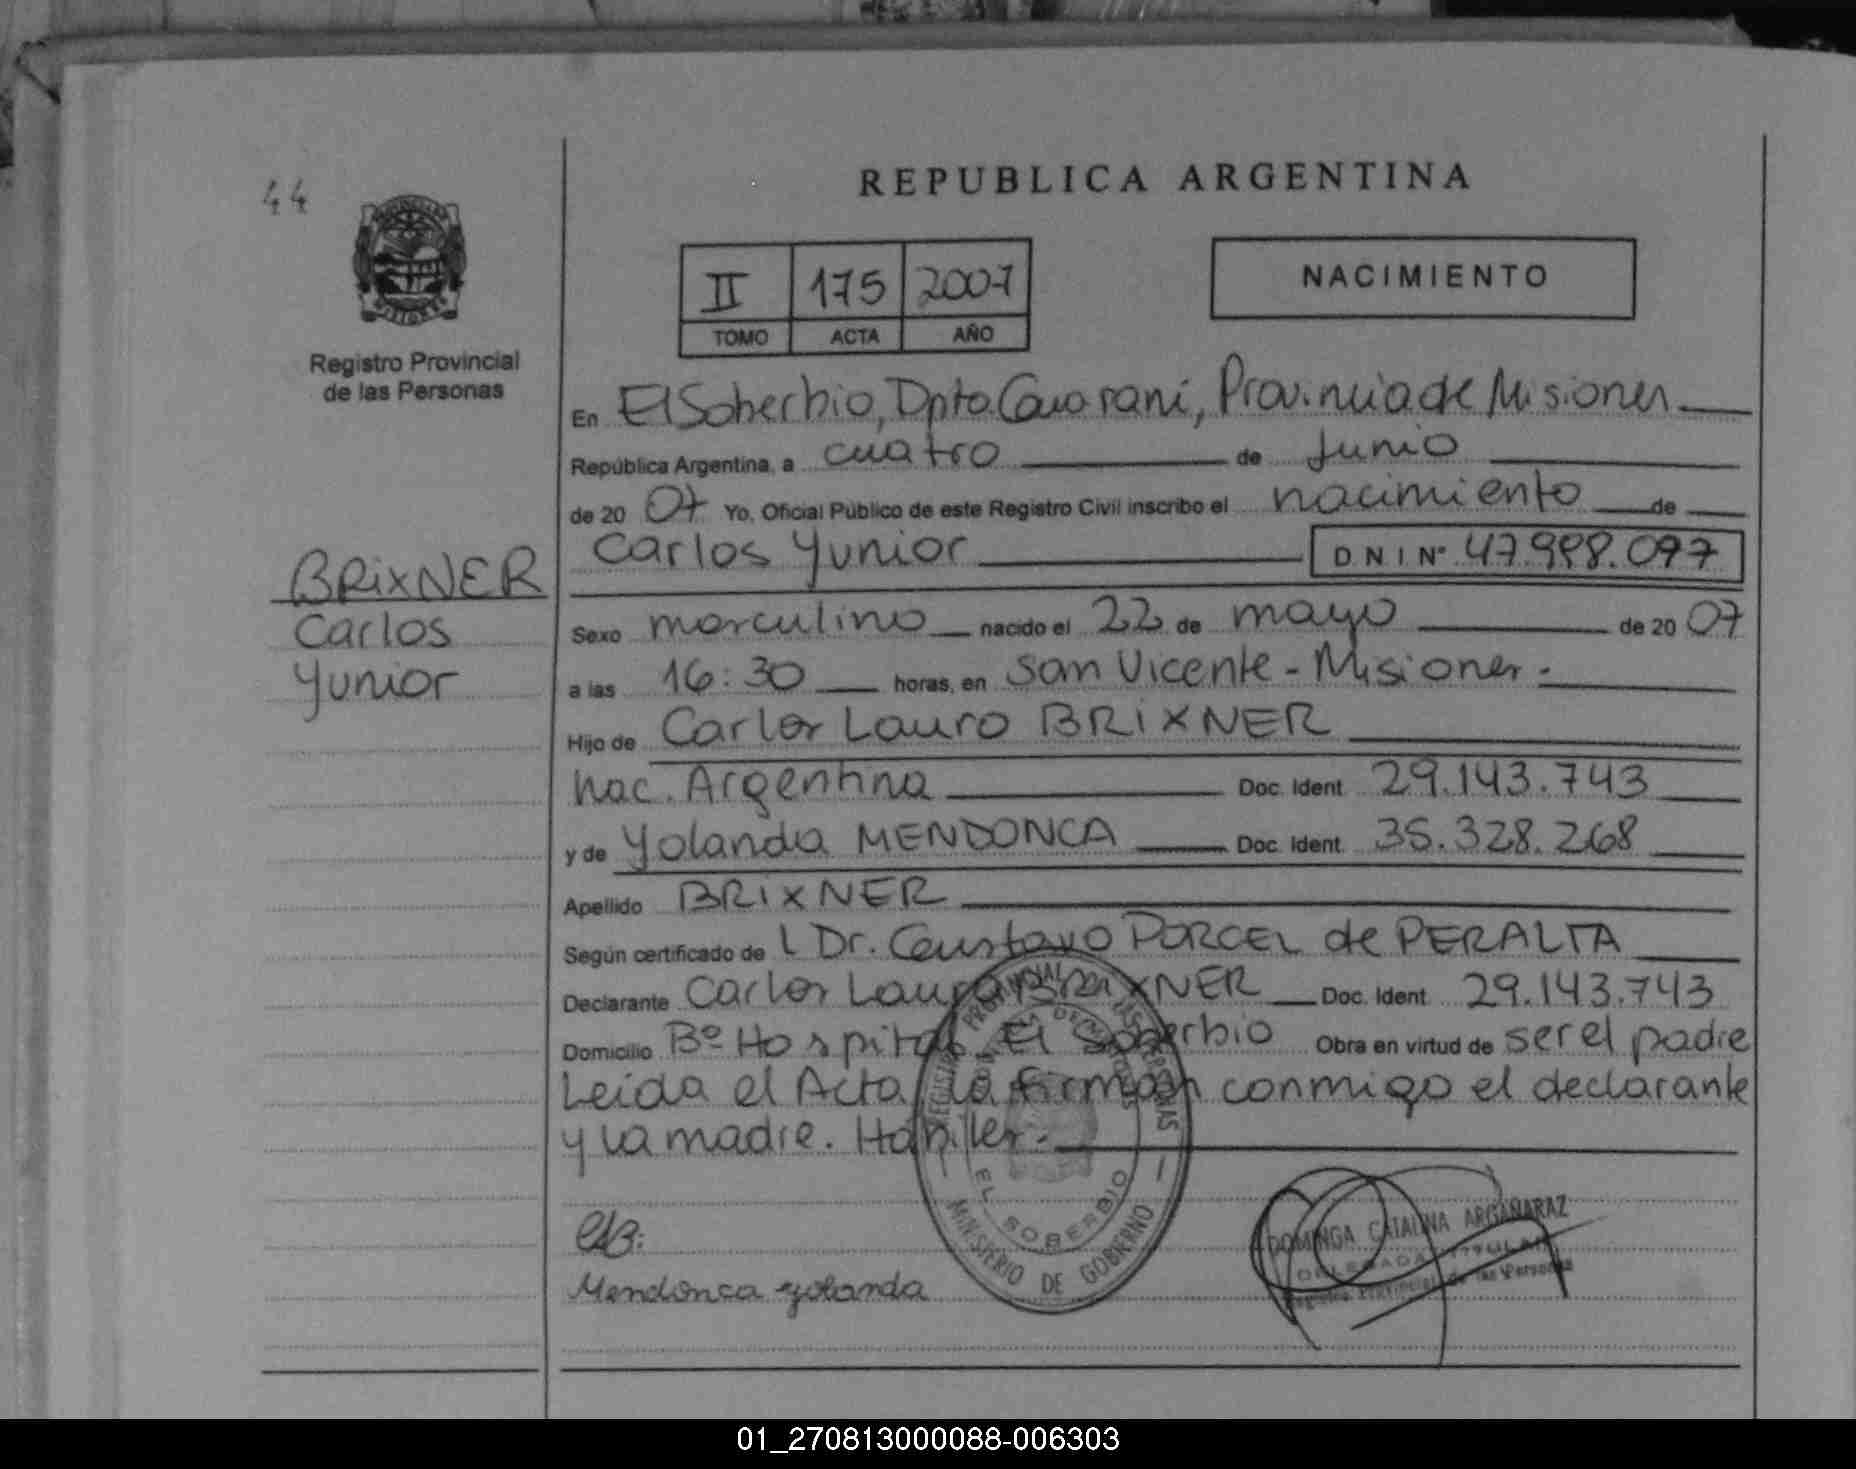 44
REPUBLICA ARGENTINA
II 175 2007
TOMO ACTA AÑO
NACIMIENTO
Registro Provincial
de las Personas
BRIXNER
Carlos
Yunior
En El Soberbio, Dpto. Guaraní, Provincia de Misiones
República Argentina, a cuatro de Junio
de 20 07 Yo, Oficial Público de este Registro Civil inscribo el nacimiento de
Carlos Yunior DNI Nº 47.998.097
Sexo masculino nacido el 22 de mayo de 20 07
a las 16:30 horas, en San Vicente - Misiones.-
Hijo de Carlos Lauro BRIXNER
nac. Argentina Doc. Ident. 29.143.743
y de Yolanda MENDONCA Doc. Ident. 35.328.268
Apellido BRIXNER
Según certificado de l Dr. Gustavo PORCEL de PERALTA
Declarante Carlos Lauro BRIXNER Doc. Ident. 29.143.743
Domicilio Bº Hospital El Soberbio Obra en virtud de ser el padre
Leída el Acta la firman conmigo el declarante
y la madre. Hábiles.-
REGISTRO PROVINCIAL DE LAS PERSONAS
EL SOBERBIO
MINISTERIO DE GOBIERNO
Mendonca yolanda
DOMINGA CATALINA ARGAÑARAZ
DELEGADA TITULAR
Registro Provincial de las Personas
01_270813000088-006303